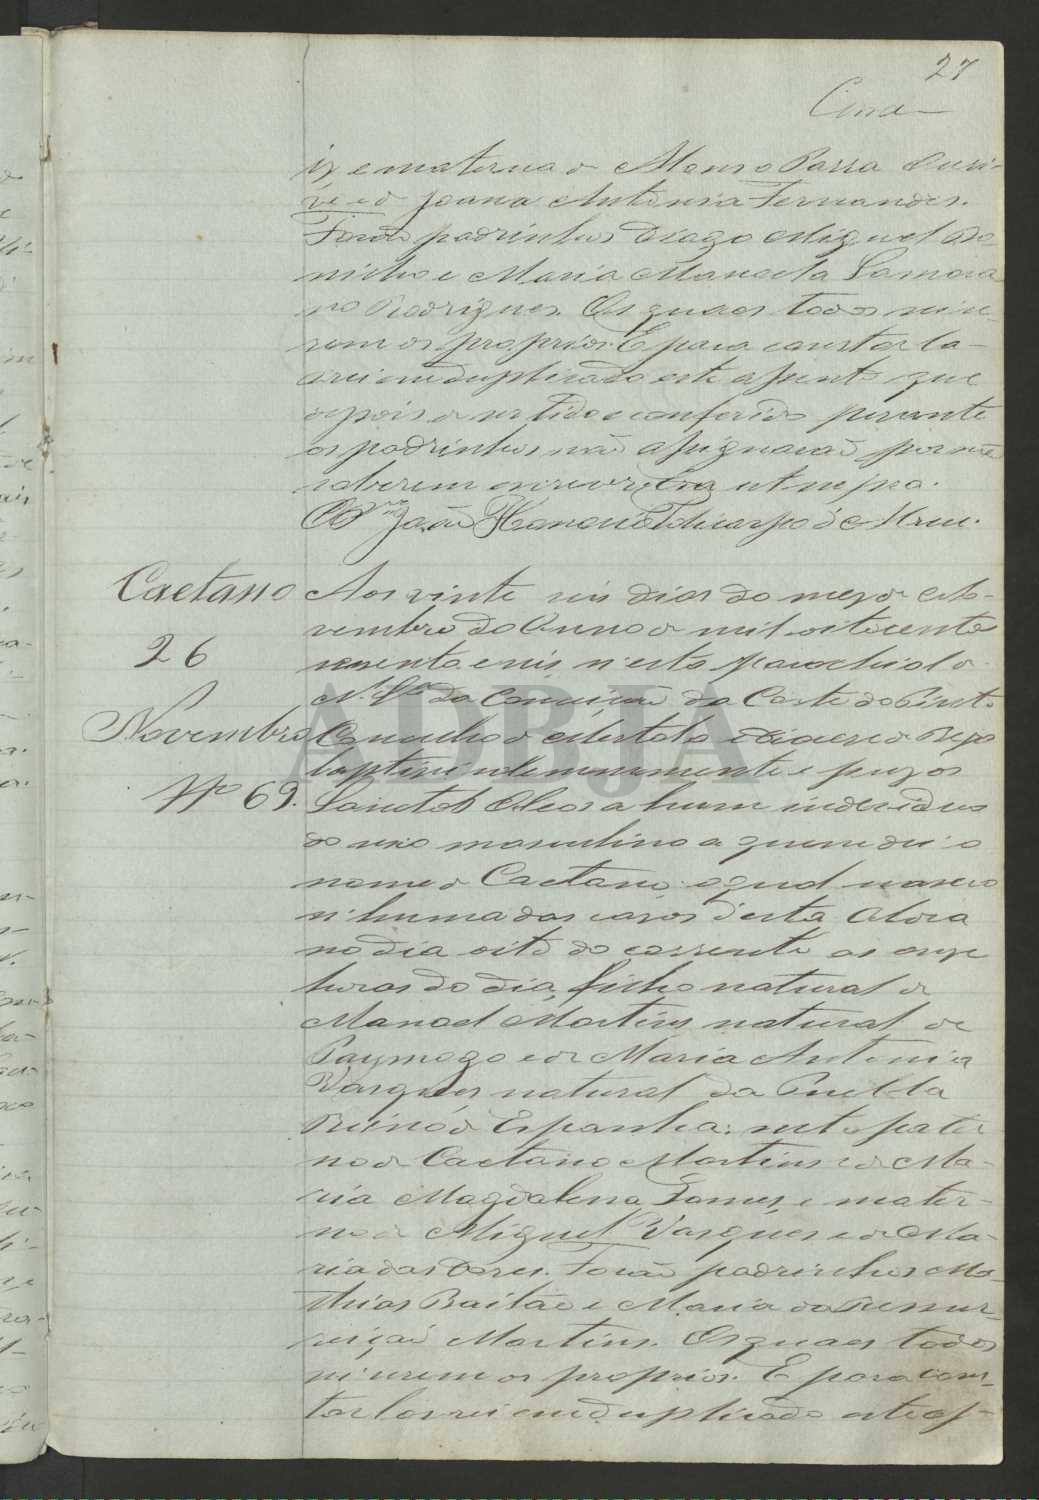 27
iz e materna de Afonso Parra
e de Joana Antonia Fernandes.
Forão padrinhos Diogo Miguel Bo-
nicho e Maria Manoela Samora
no Rodrigues. Os quaes todos rei u-
rem os proprios. E para constar la-
vrei em duplicado este assento que
depois de ser lido e conferido perante
os padrinhos não assignarão por não
saberem escrever. Era ut supra.
João
Caetano
26
Novembro
Nº 69.
Aos vinte seis dias do mez de No-
vembro do Anno de mil oitocentos
sessenta e seis n'esta parochial de
N. Srª da Conceição da Corte do Pinto
Concelho de Mertola e Diocese de Beja
baptisei solemnemente e puz os
Santos Oleos a hum individuo
do sexo masculino a quem dei o
nome de Caetano: o qual nasceo
n'huma das casas d'esta Aldea
no dia oito do corrente as onze
horas do dia, filho natural de
Manoel Martins natural de
Paymogo e de Maria Antonia
Vasques natural da Puebla
Reino de Espanha: neto pater
no de Caetano Martins e de Ma-
ria Magdalena Gomes, e mater-
no de Miguel Vasques e de Ma-
ria das Dores. Forão padrinhos Ma-
thias Baitão e Maria da Ressur-
reição Martins. Os quaes todos
rei urem os proprios. E para cons-
tar lavrei em duplicado este as-
ADBJA